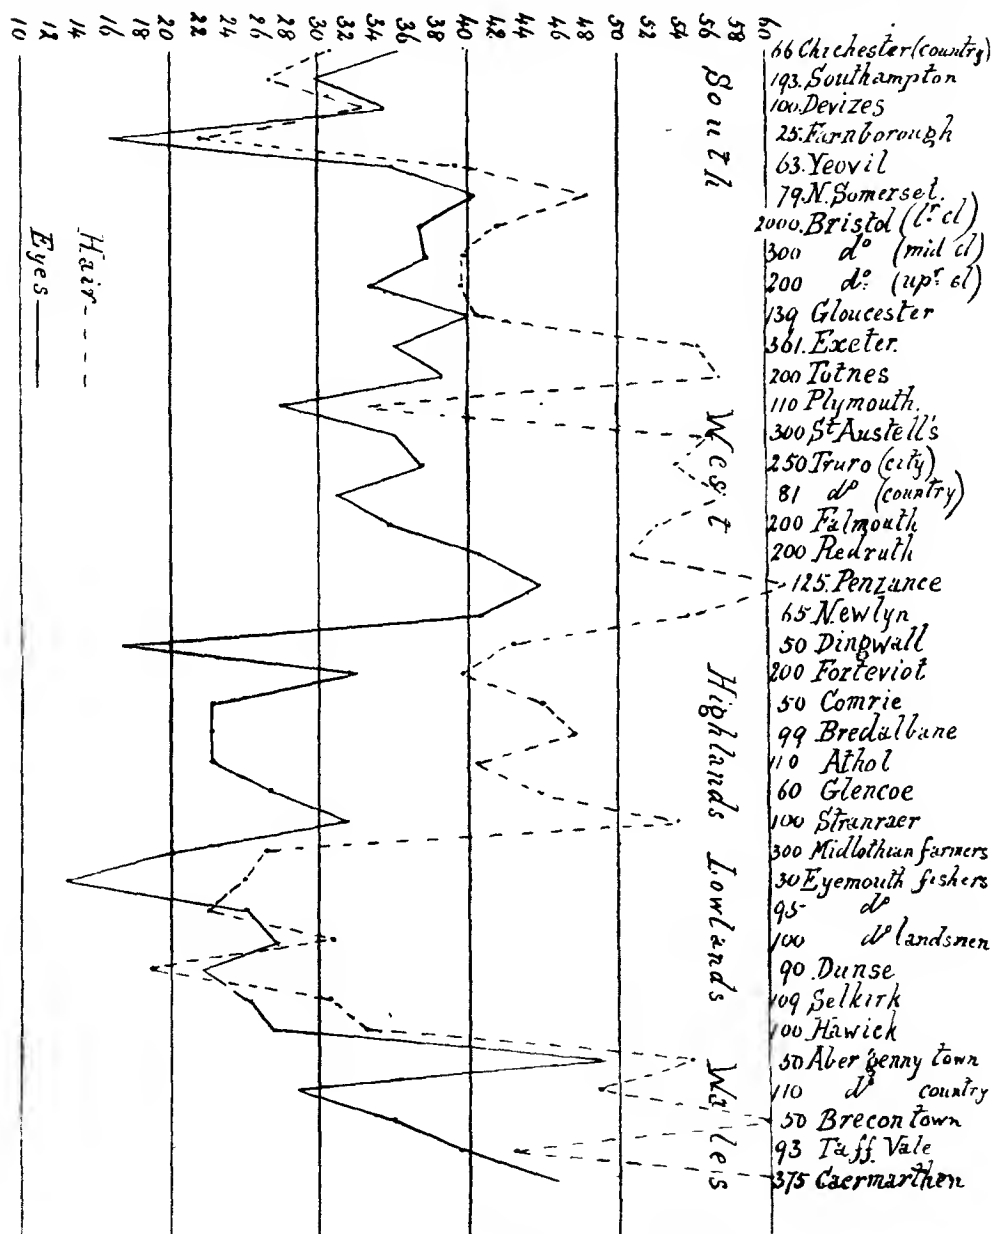 10 12 14 16 18 20 22 24 26 28 30 32 34 36 38 40 42 44 46 48 50 52 54 56 58 60
66 Chichester (country)
193. Southampton
100. Devizes
25. Farnborough
63. Yeovil
79. N. Somerset.
2000. Bristol (lr cl)
300 do (mid cl)
200 do: (upr. cl)
139 Gloucester
361. Exeter.
200 Totnes
110 Plymouth.
300 St Austell's
250 Truro (city)
81 do (country)
200 Falmouth
200 Redruth
125. Penzance
65 Newlyn
50 Dingwall
200 Forteviot
50 Comrie
99 Bredalbane
110 Athol
60 Glencoe
100 Stranraer
300 Midlothian farmers
30 Eyemouth fishers
95 do
100 do landsmen
90. Dunse
109 Selkirk
100 Hawick
50 Aber'genny town
110 do country
50 Brecon town
93 Taff Vale
375 Caermarthen
South
West
Highlands
Lowlands
Wales
Hair
Eyes